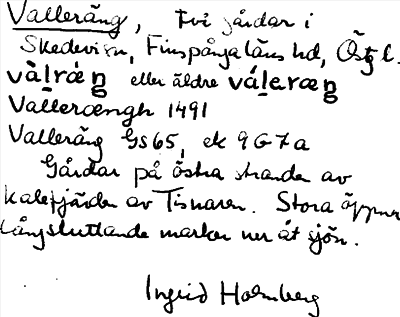 Valleräng, Två gårdar i
Skedevi sn, Finspånga läns hd, Östg l.
vàlræŋ eller äldre váleræŋ
Vallerængh 1491
Valleräng GS65, ek 9G7a
Gårdar på östra stranden av
Kalvfjärden av Tisnaren. Stora öppna
långsluttande marker ner åt sjön.
Ingrid Holmberg